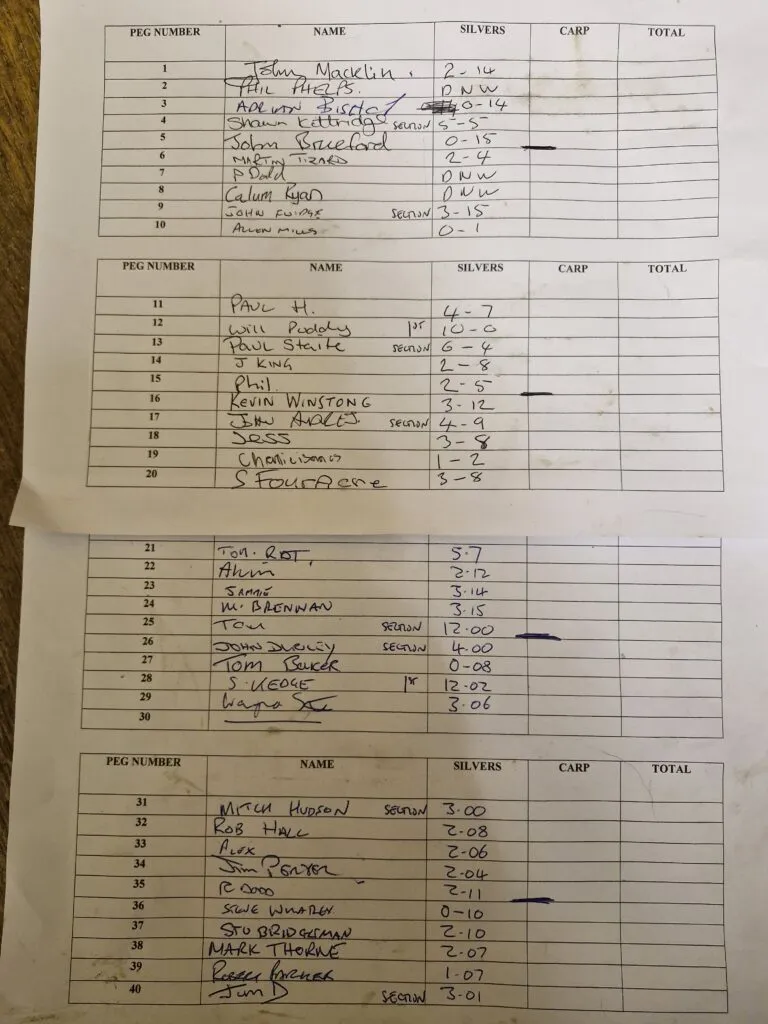 PEG NUMBER NAME SILVERS CARP TOTAL
1 John Macklin. 2-14
2 PHIL PHELPS. DNW
3 ADRIAN BISHOP 0-14
4 Shawn Kettridge SECTION 5-5
5 John Brueford 0-15
6 MARTIN TIZARD 2-4
7 P Dodd DNW
8 Calum Ryan DNW
9 JOHN FUDGE SECTION 3-15
10 ALLEN MILLS 0-1
PEG NUMBER NAME SILVERS CARP TOTAL
11 PAUL H. 4-7
12 Will Puddy 1ST 10-0
13 PAUL Staite SECTION 6-4
14 J KING 2-8
15 Phil. 2-5
16 KEVIN WINSTONE 3-12
17 JOHN SECTION 4-9
18 JESS 3-8
19 1-2
20 S FourAcre 3-8
21 TOM. 5.7
22 2.12
23 SAMMIE 3.14
24 M. BRENNAN 3.15
25 TOM SECTION 12.00
26 JOHN DURLEY SECTION 4.00
27 TOM BAKER 0-08
28 S. KEDGE 1ST 12.02
29 3.06
30
PEG NUMBER NAME SILVERS CARP TOTAL
31 MITCH HUDSON SECTION 3.00
32 ROB HALL 2-08
33 ALEX 2-06
34 Jim 2.04
35 R DODD 2-11
36 STEVE 0-10
37 STU BRIDGEMAN 2-10
38 MARK THORNE 2.07
39 1.07
40 Jim D SECTION 3-01